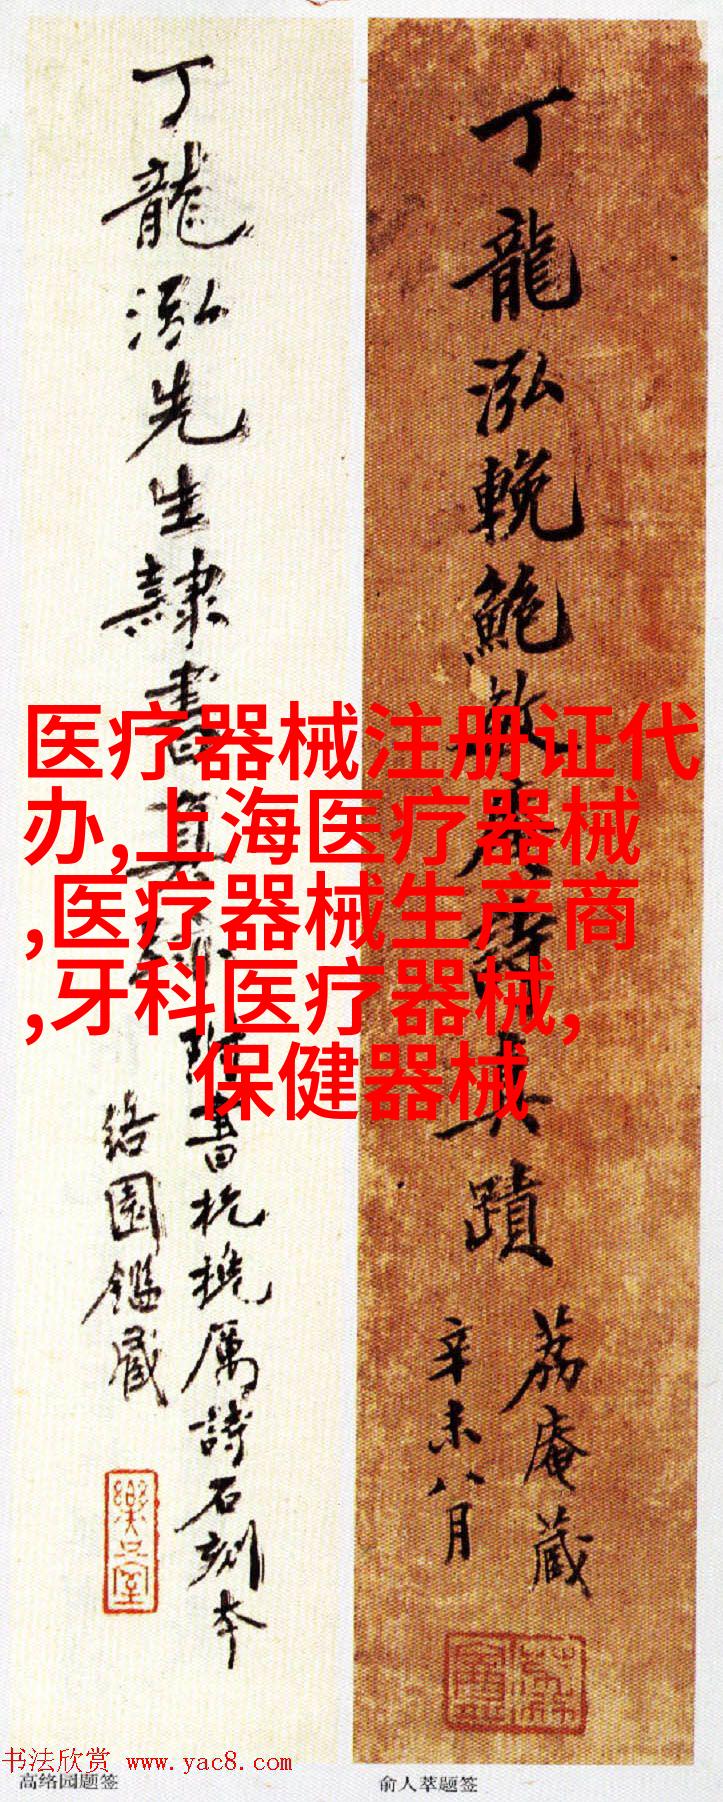 丁龍泓先生隸書真跡
附書杭機厲詩石刻本
絡園鑑藏
樂只室
丁龍泓輓鮑敬
詩真蹟
荔庵藏
辛未八月
医疗器械注册证代
办,上海医疗器械
,医疗器械生产商
,牙科医疗器械,
保健器械
书法欣赏 www.yac8.com
高络园题签
俞人萃题签